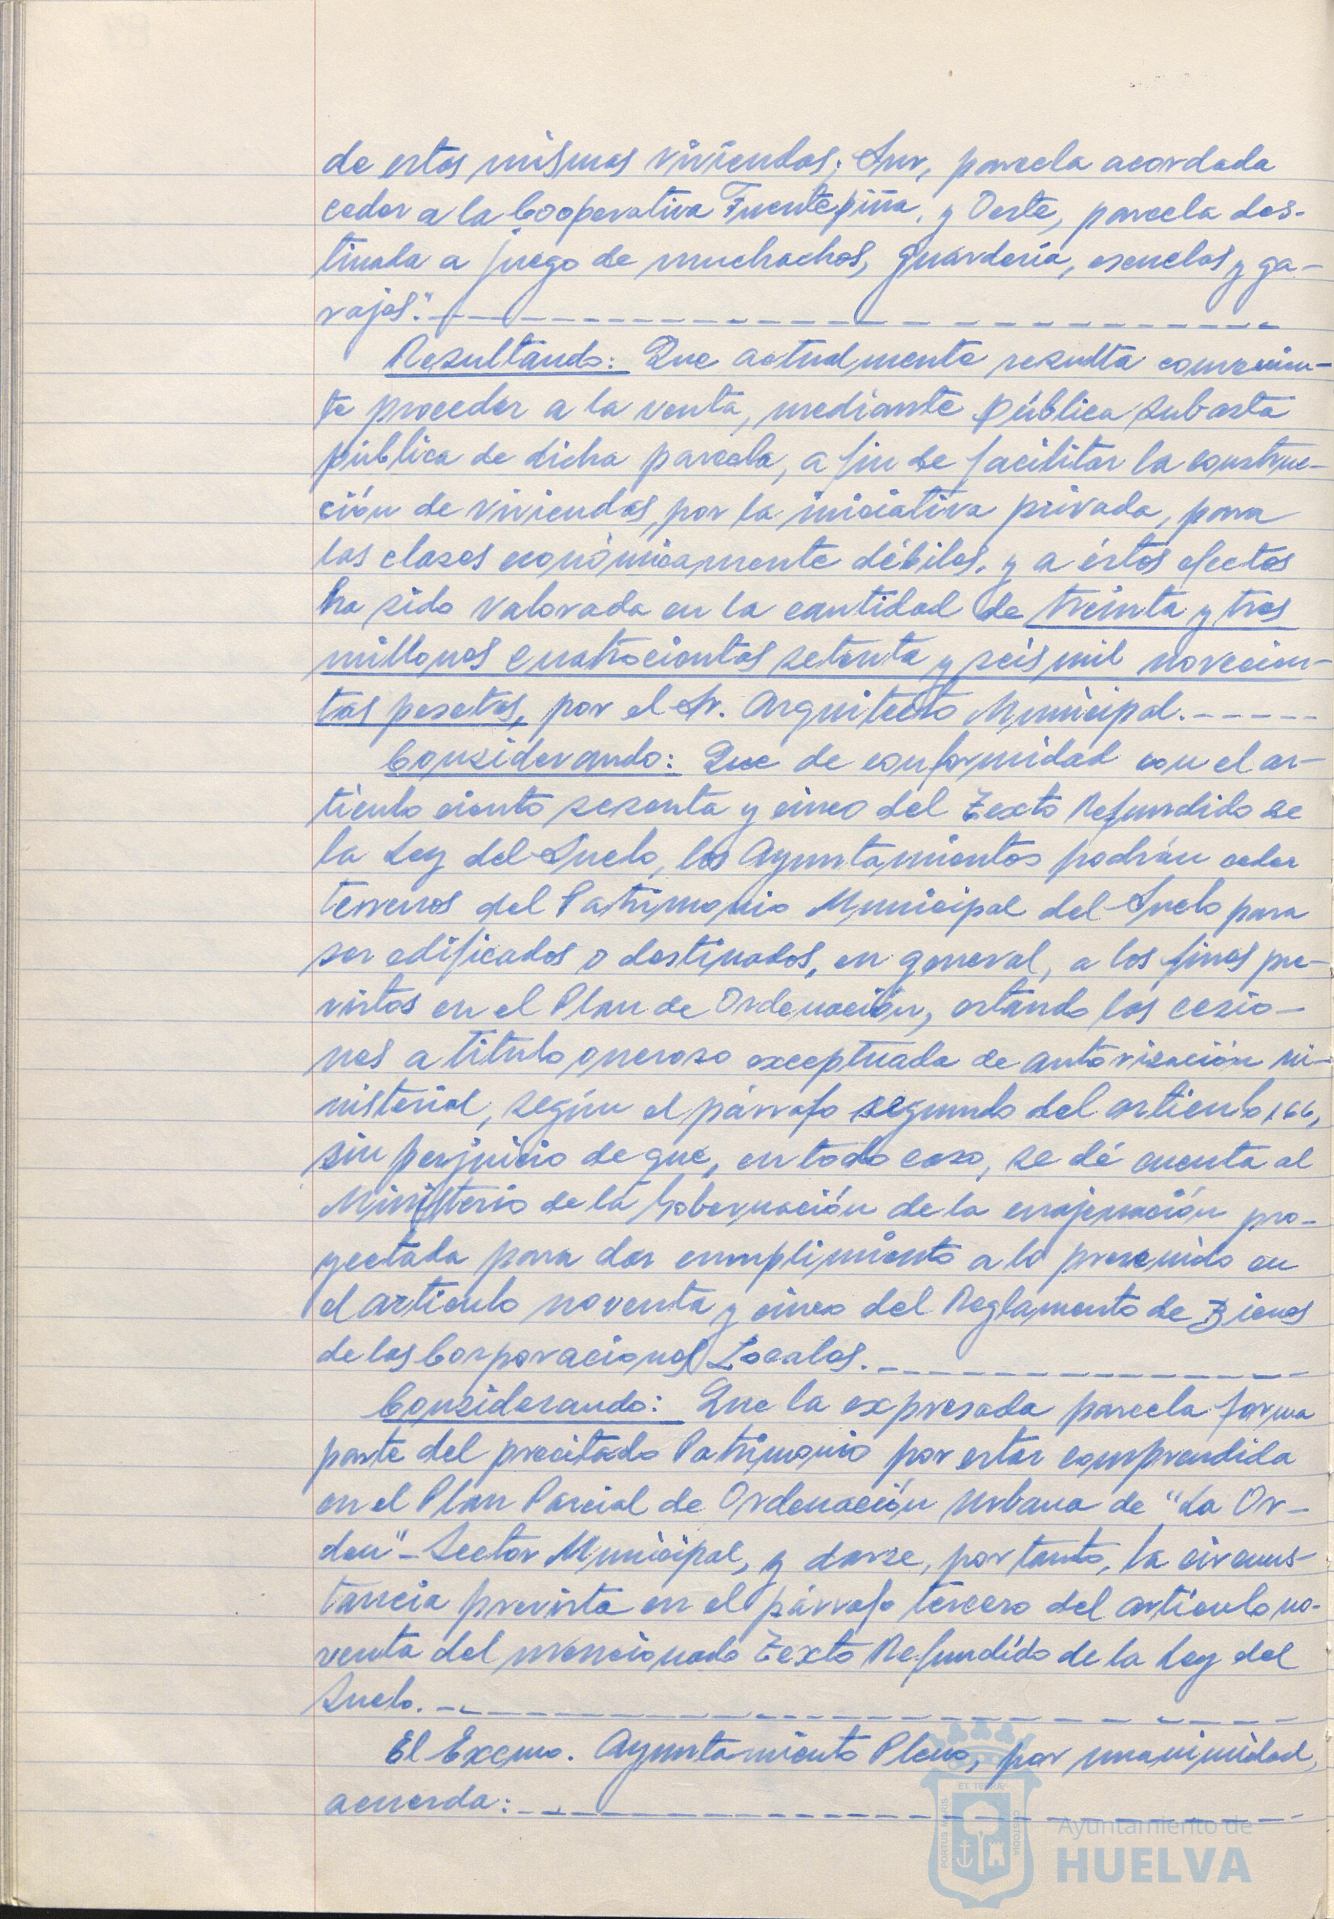 de estas mismas viviendas; Sur, parcela acordada
ceder a la Cooperativa Fuentepiña, y Oeste, parcela des-
tinada a juego de muchachos, guardería, escuelas y ga-
rajes".
Resultando: Que actualmente resulta convenien-
te proceder a la venta, mediante pública subasta
pública de dicha parcela, a fin de facilitar la construc-
ción de viviendas, por la iniciativa privada, para
las clases económicamente débiles, y a éstos efectos
ha sido valorada en la cantidad de treinta y tres
millones cuatrocientas setenta y seis mil novecien-
tas pesetas, por el Sr. Arquitecto Municipal.
Considerando: Que de conformidad con el ar-
tículo ciento sesenta y cinco del Texto Refundido de
la Ley del Suelo, los Ayuntamientos podrán ceder
terrenos del Patrimonio Municipal del Suelo para
ser edificados o destinados, en general, a los fines pre-
vistos en el Plan de Ordenación, estando las cesio-
nes a título oneroso exceptuada de autorización mi-
nisterial, según el párrafo segundo del artículo 166,
sin perjuicio de que, en todo caso, se dé cuenta al
Ministerio de la Gobernación de la enajenación pro-
yectada para dar cumplimiento a lo prevenido en
el artículo noventa y cinco del Reglamento de Bienes
de las Corporaciones Locales.
Considerando: Que la expresada parcela forma
parte del precitado Patrimonio por estar comprendida
en el Plan Parcial de Ordenación Urbana de "La Or-
den" - Sector Municipal, y darse, por tanto, la circuns-
tancia prevista en el párrafo tercero del artículo no-
venta del mencionado Texto Refundido de la Ley del
Suelo.
El Excmo. Ayuntamiento Pleno, por unanimidad,
acuerda:
PORTUS MARIS
ET TERRAE
CUSTODIA
Ayuntamiento de
HUELVA